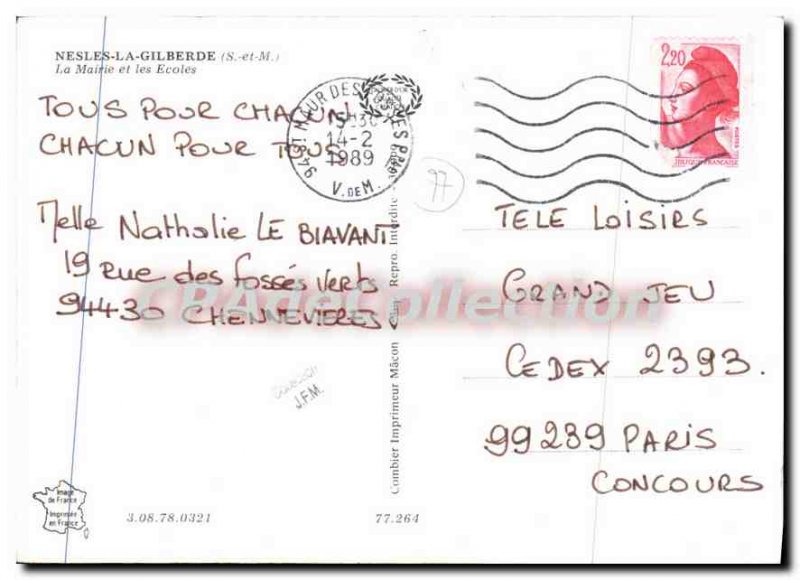 NESLES-LA-GILBERDE (S.-et-M.)
La Mairie et les Ecoles
TOUS POUR CHACUN
CHACUN POUR TOUS
Melle Nathalie LE BIAVANT
19 rue des fossés verts
94430 CHENNEVIERES
94 ST MAUR DES FOSSES PPAL
14-2
1989
V. DE M.
77
2,20
POSTES
REPUBLIQUE FRANÇAISE
TELE LOISIRS
GRAND JEU
CEDEX 2393.
99239 PARIS
CONCOURS
CPAdeCollection
Combier Imprimeur Mâcon
Repro. Interdite
J.F.M.
Image
de France
Imprimée
en France
3.08.78.0321
77.264